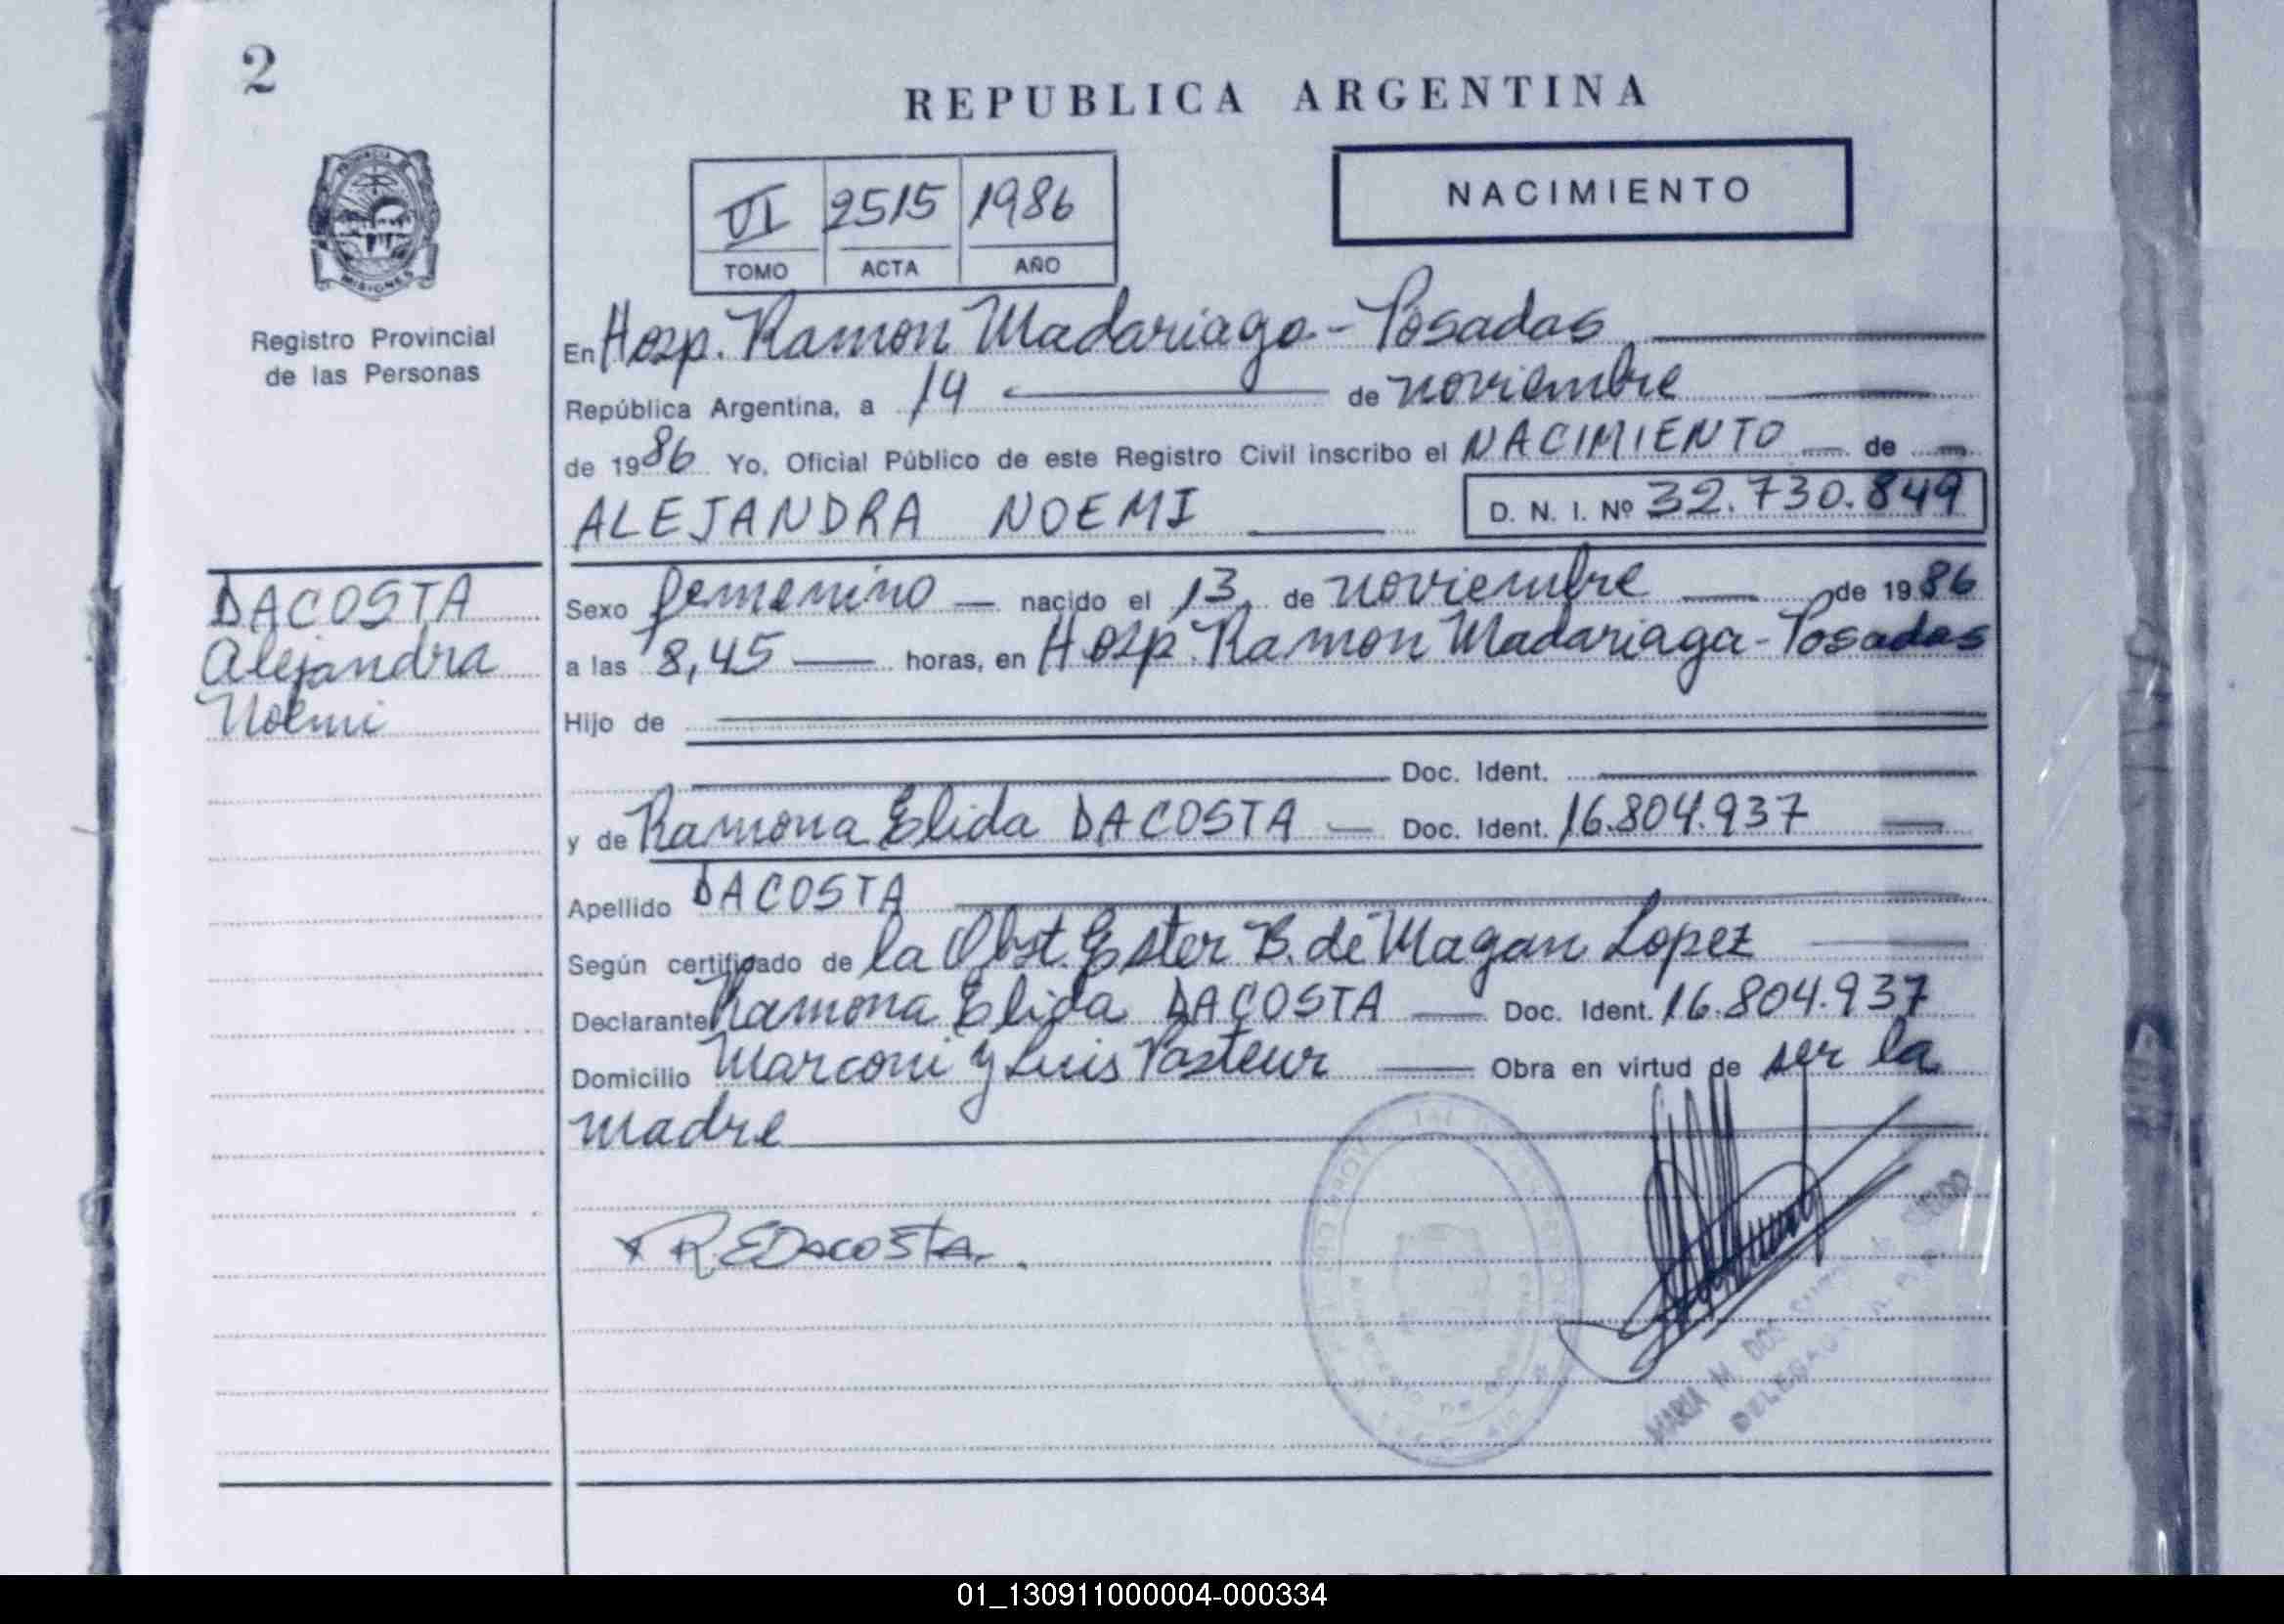 2
REPUBLICA ARGENTINA
NACIMIENTO
VI 2515 1986
TOMO ACTA AÑO
PROVINCIA DE
MISIONES
Registro Provincial
de las Personas
En Hosp. Ramon Madariaga - Posadas
República Argentina, a 14 de noviembre
de 1986 Yo, Oficial Público de este Registro Civil inscribo el NACIMIENTO de
ALEJANDRA NOEMI D. N. I. Nº 32.730.849
DACOSTA
Alejandra
Noemi
Sexo femenino nacido el 13 de noviembre de 1986
a las 8,45 horas, en Hosp. Ramon Madariaga - Posadas
Hijo de
Doc. Ident.
y de Ramona Elida DACOSTA Doc. Ident. 16.804.937
Apellido DACOSTA
Según certificado de la Obst. Ester B. de Magan Lopez
Declarante Ramona Elida DACOSTA Doc. Ident. 16.804.937
Domicilio Marconi y Luis Pasteur Obra en virtud de ser la
madre
R.E DACOSTA.
MARIA M. DOS
01_130911000004-000334